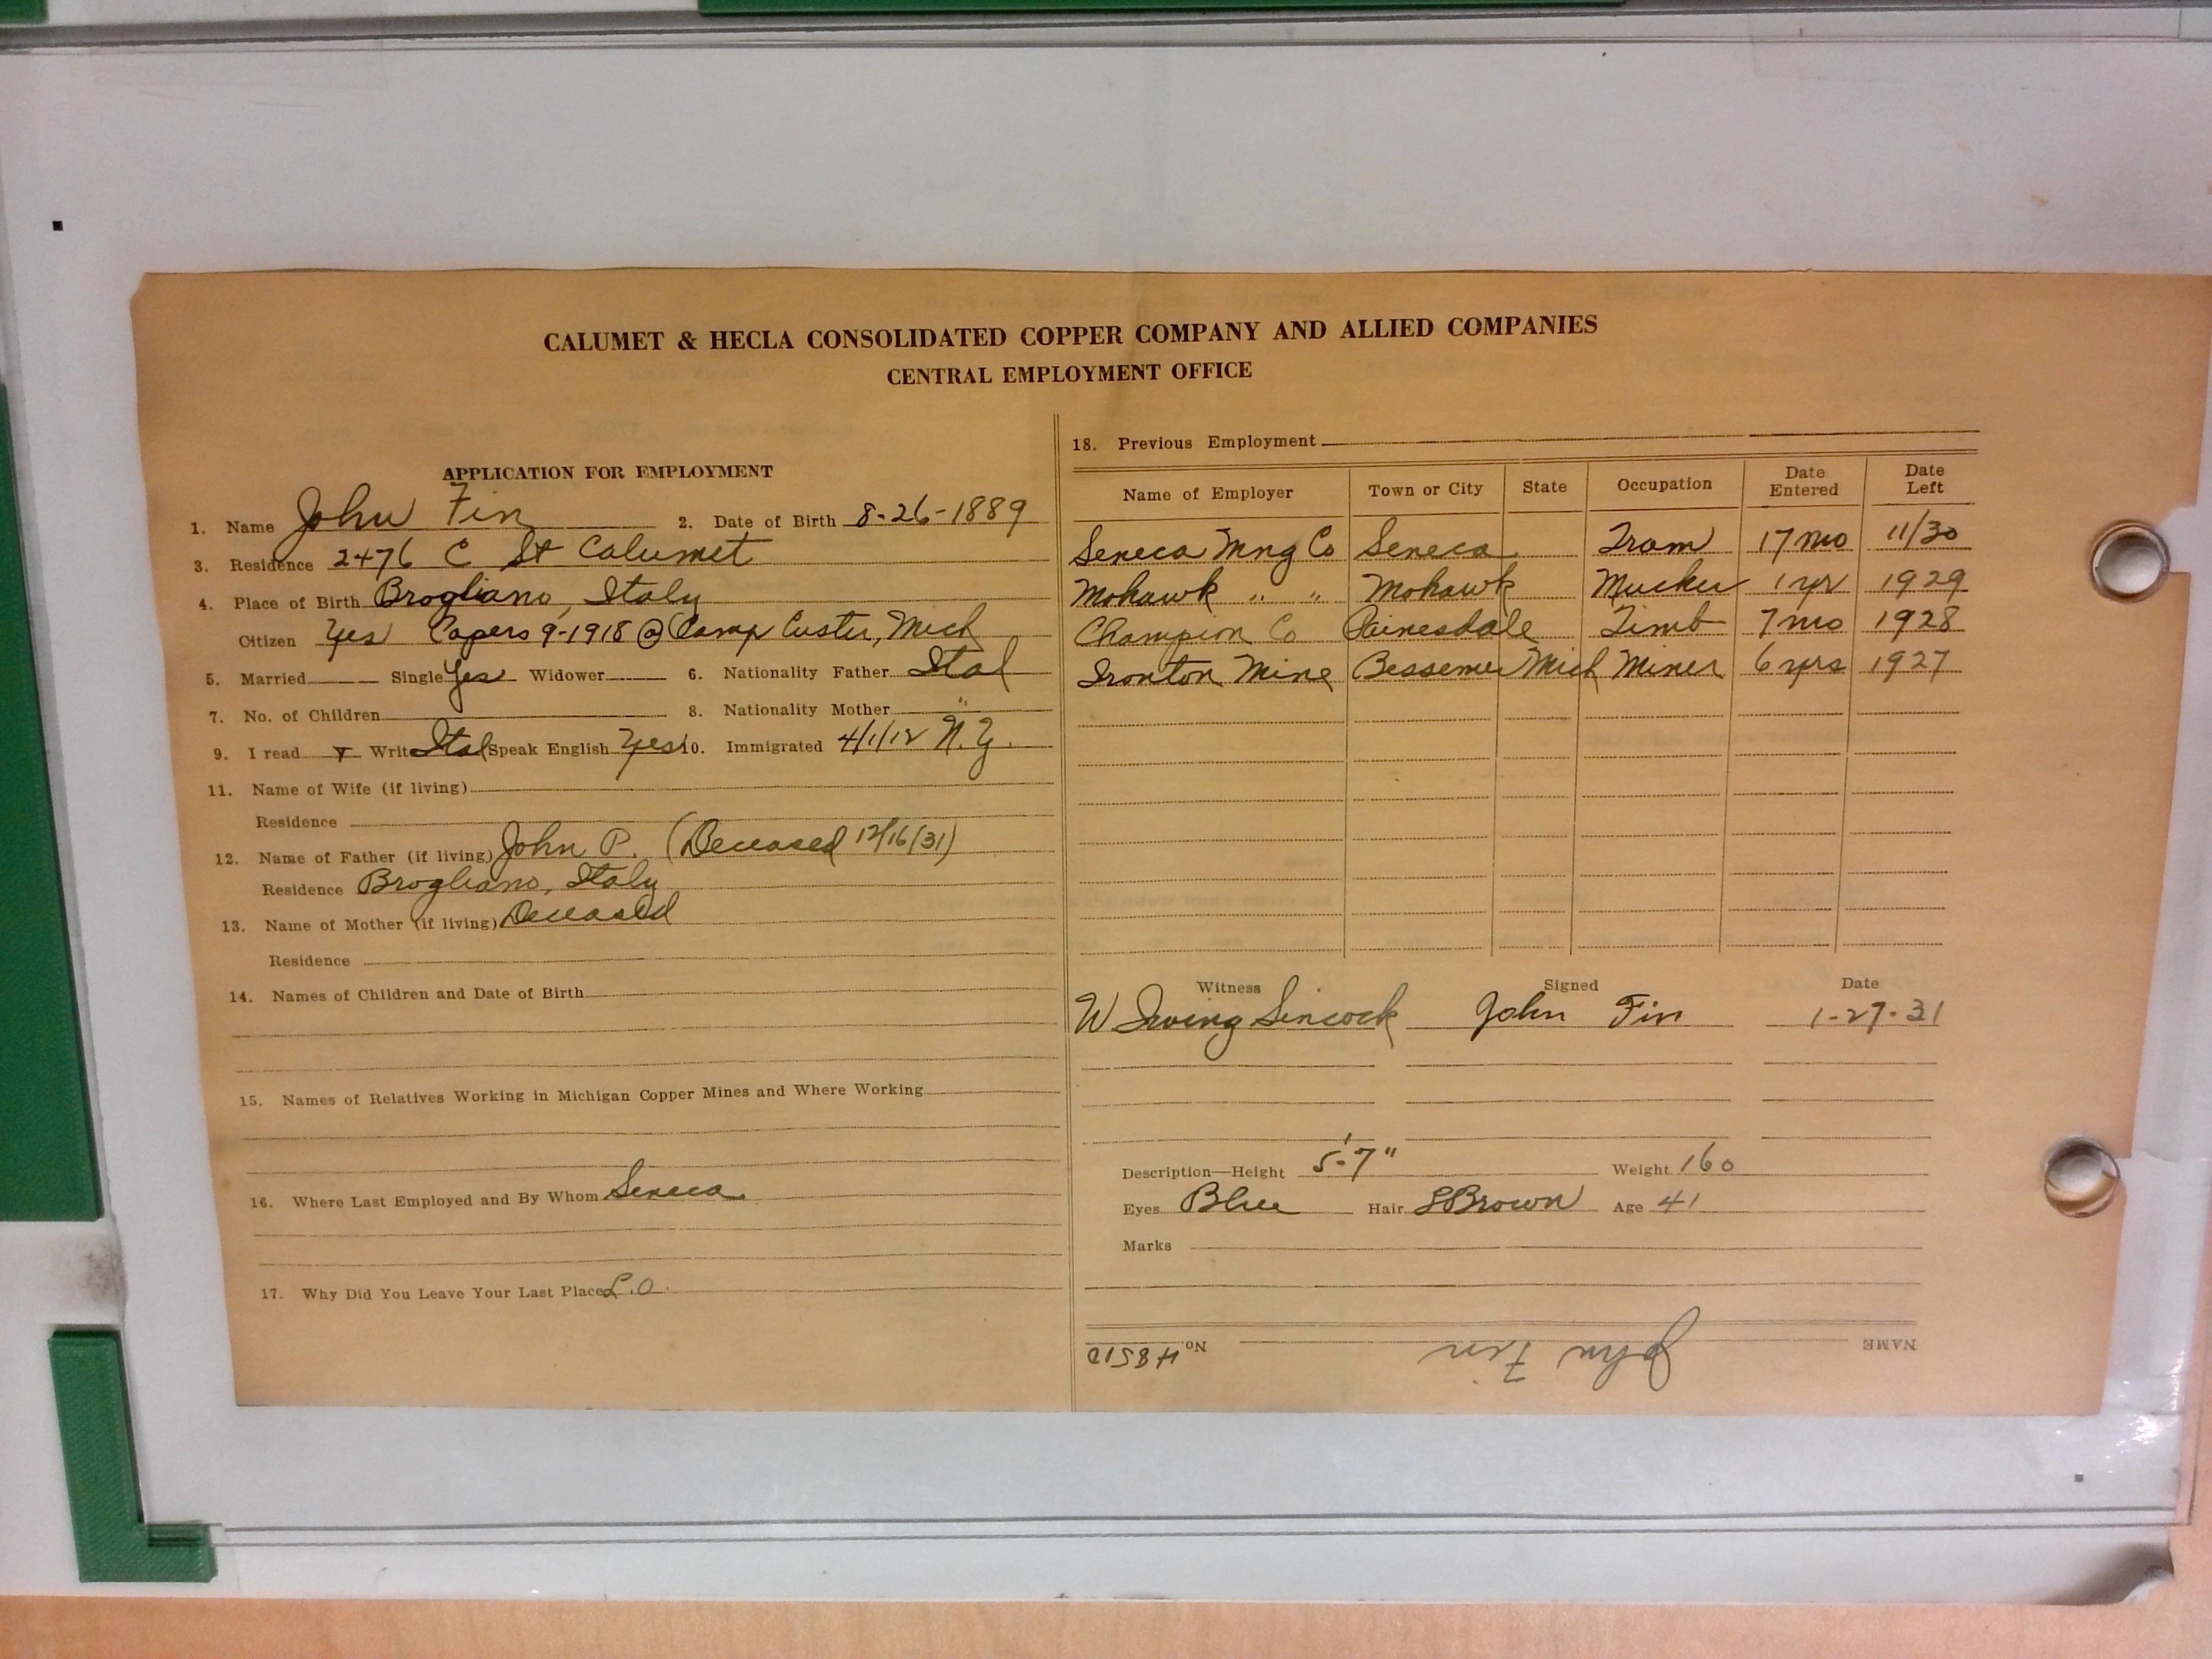 CALUMET & HECLA CONSOLIDATED COPPER COMPANY AND ALLIED COMPANIES
CENTRAL EMPLOYMENT OFFICE
APPLICATION FOR EMPLOYMENT
1. Name John Fin 2. Date of Birth 8-26-1889
3. Residence 2476 C St Calumet
4. Place of Birth Brogliano, Italy
Citizen Yes Papers 9-1918 @ Camp Custer, Mich
5. Married Single Yes Widower 6. Nationality Father Ital
7. No. of Children 8. Nationality Mother "
9. I read Writ Ital Speak English Yes 10. Immigrated 4/1/12 N.Y.
11. Name of Wife (if living)
Residence
12. Name of Father (if living) John P. (Deceased 12/16/31)
Residence Brogliano, Italy
13. Name of Mother (if living) Deceased
Residence
14. Names of Children and Date of Birth
15. Names of Relatives Working in Michigan Copper Mines and Where Working
16. Where Last Employed and By Whom Seneca
17. Why Did You Leave Your Last Place L.O.
18. Previous Employment
Name of Employer Town or City State Occupation Date Entered Date Left
Seneca Mng Co Seneca Tram 17 mo 11/30
Mohawk " " Mohawk Mucker 1 yr 1929
Champion Co Painesdale Timb 7 mo 1928
Ironton Mine Bessemer Mich Miner 6 yrs 1927
Witness Signed Date
W Irving Sincock John Fin 1-27-31
Description—Height 5'-7" Weight 160
Eyes Blue Hair LBrown Age 41
Marks
NAME John Fin No. H851D